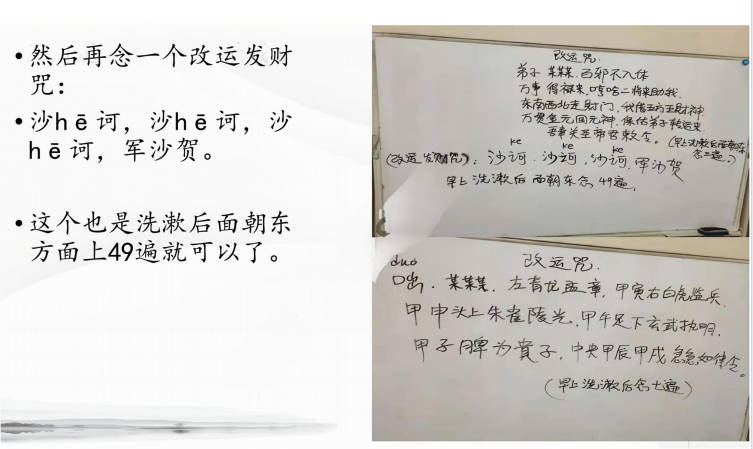 • 然后再念一个改运发财
咒：
• 沙hē诃，沙hē诃，沙
hē诃，军沙贺。
• 这个也是洗漱后面朝东
方面上49遍就可以了。
改运咒.
弟子 某某某. 百邪不入体
万事得福来, 哼哈二将来助我.
东南西北走财门, 代偕五方五财神
万贯金元回元神. 保佑弟子转运来.
吾奉关圣帝君敕令。(早上洗漱后面朝东
念三遍。)
ke ke ke
(改运发财咒): 沙诃. 沙诃, 沙诃. 军沙贺
早上洗漱后面朝东念49遍.
duo 改运咒.
咄. 某某某. 左青龙孟章, 甲寅右白虎监兵.
甲申头上朱雀陵光. 甲午足下玄武执明.
甲子月脾为贵子, 中央甲辰甲戌急急如律令。
(早上洗漱后念七遍)